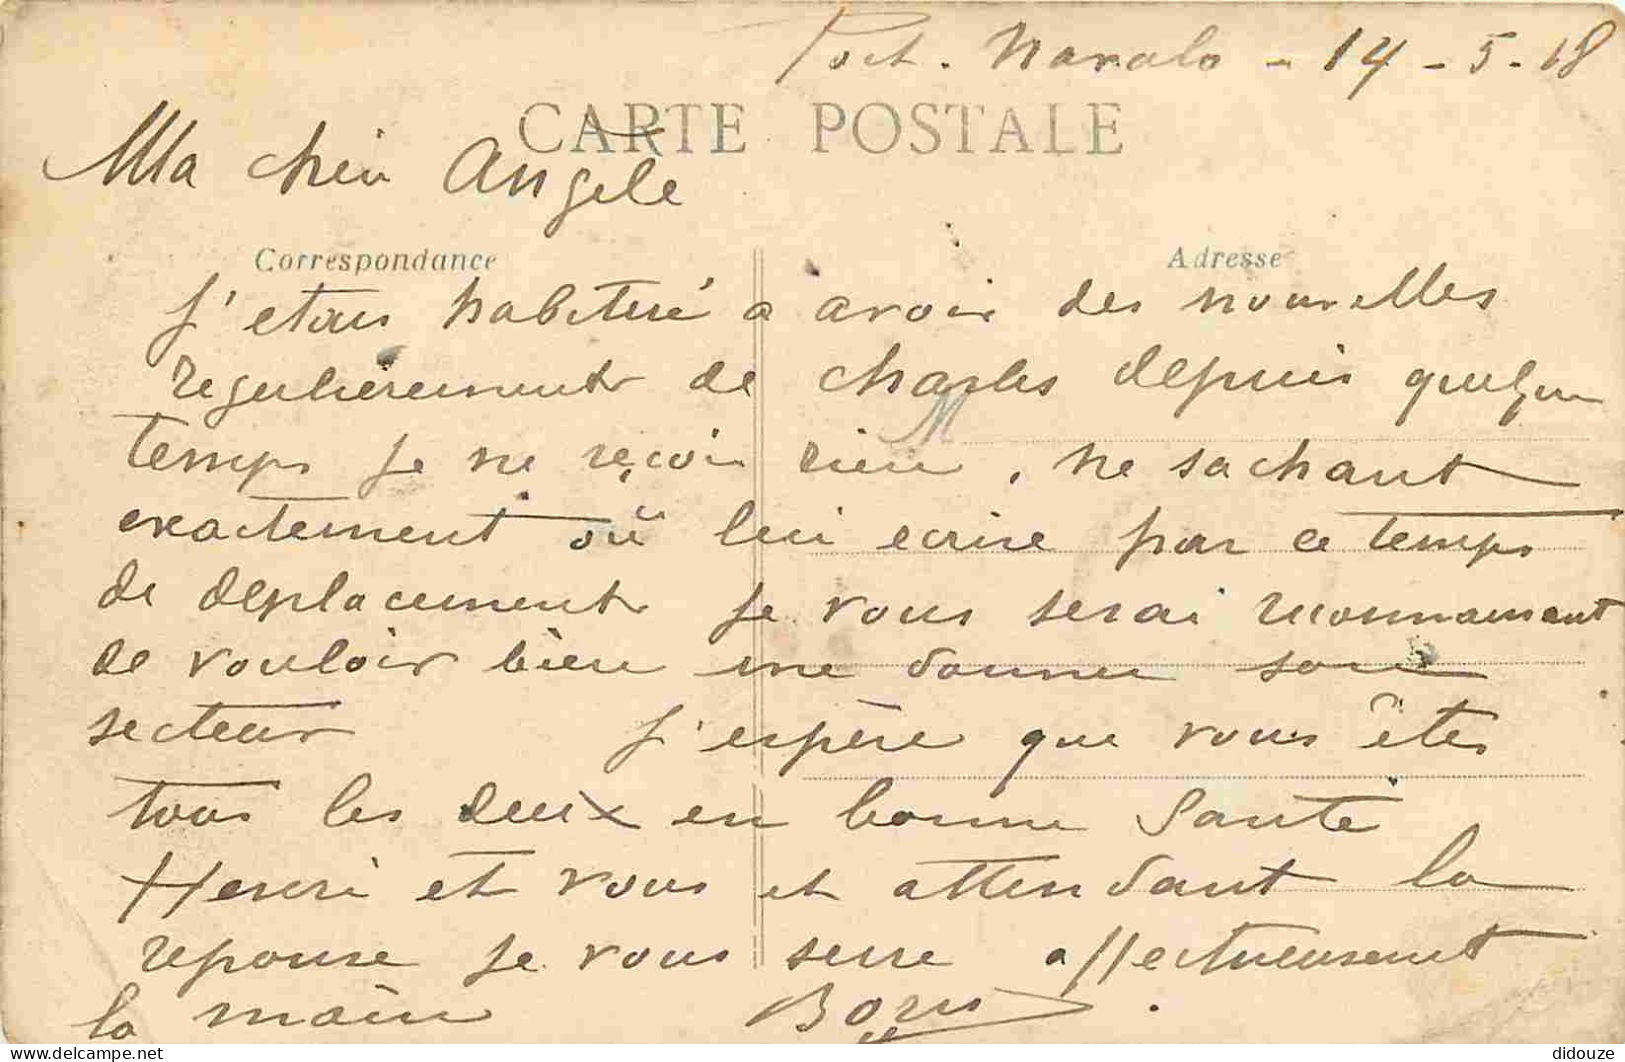 Port. Navalo - 14 - 5 - 18
CARTE POSTALE
Ma chèr Angèle
Correspondance
Adresse
J'etais habitué a avoir des nouvelles
regulièrement de Charles depuis quelque
temps je ne reçois rien, ne sachant
exactement où lui ecrire par ce temps
de deplacement je vous serai reconnaissant
de vouloir bien me donner son
secteur J'espère que vous êtes
tous les deux en bonne Santé
Henri et vous et attendant la
reponse je vous serre affectueusement
la main
didouze